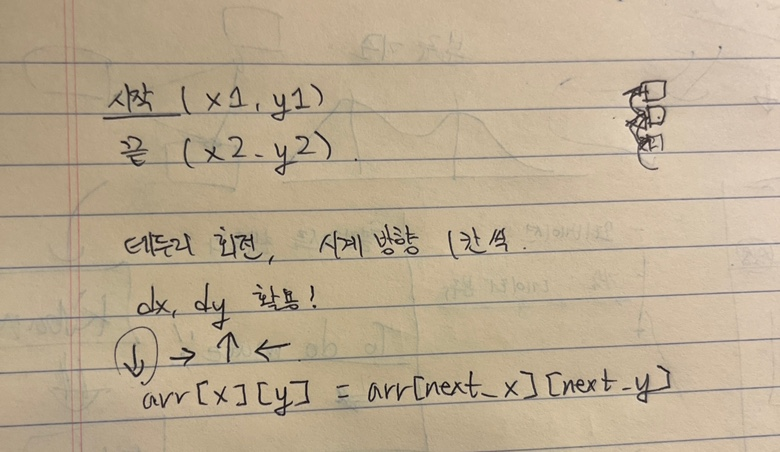 시작 (x1, y1)
끝 (x2-y2).
테두리 회전, 시계 방향 1칸씩.
dx, dy 활용!
↓ → ↑ ←
arr[x][y] = arr[next_x][next_y]